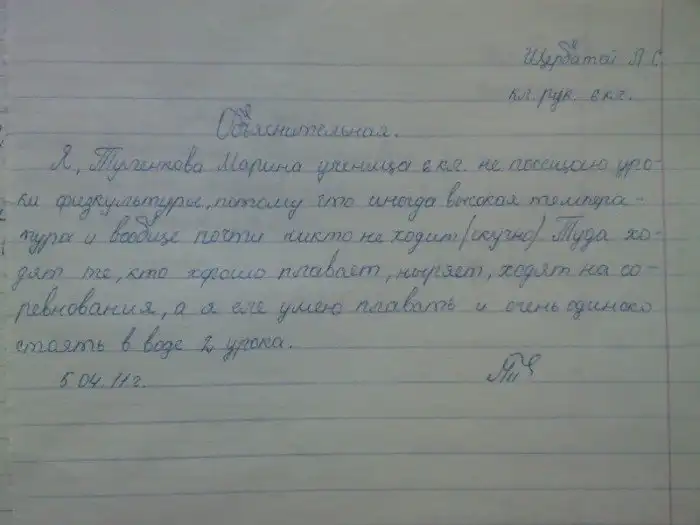 Щербатой Я С.
кл. рук. 6 кл.
Объяснительная.
Я, Тугенкова Марина ученица 6 кл. не посещаю уро-
ки физкультуры, потому что иногда высокая темпера-
тура и вообще почти никто не ходит (скучно) Туда хо-
дят те, кто хорошо плавает, ныряет, ходят на со-
ревнования, а я еле умею плавать и очень одиноко
стоять в воде 2 урока.
5 04. 11 г.